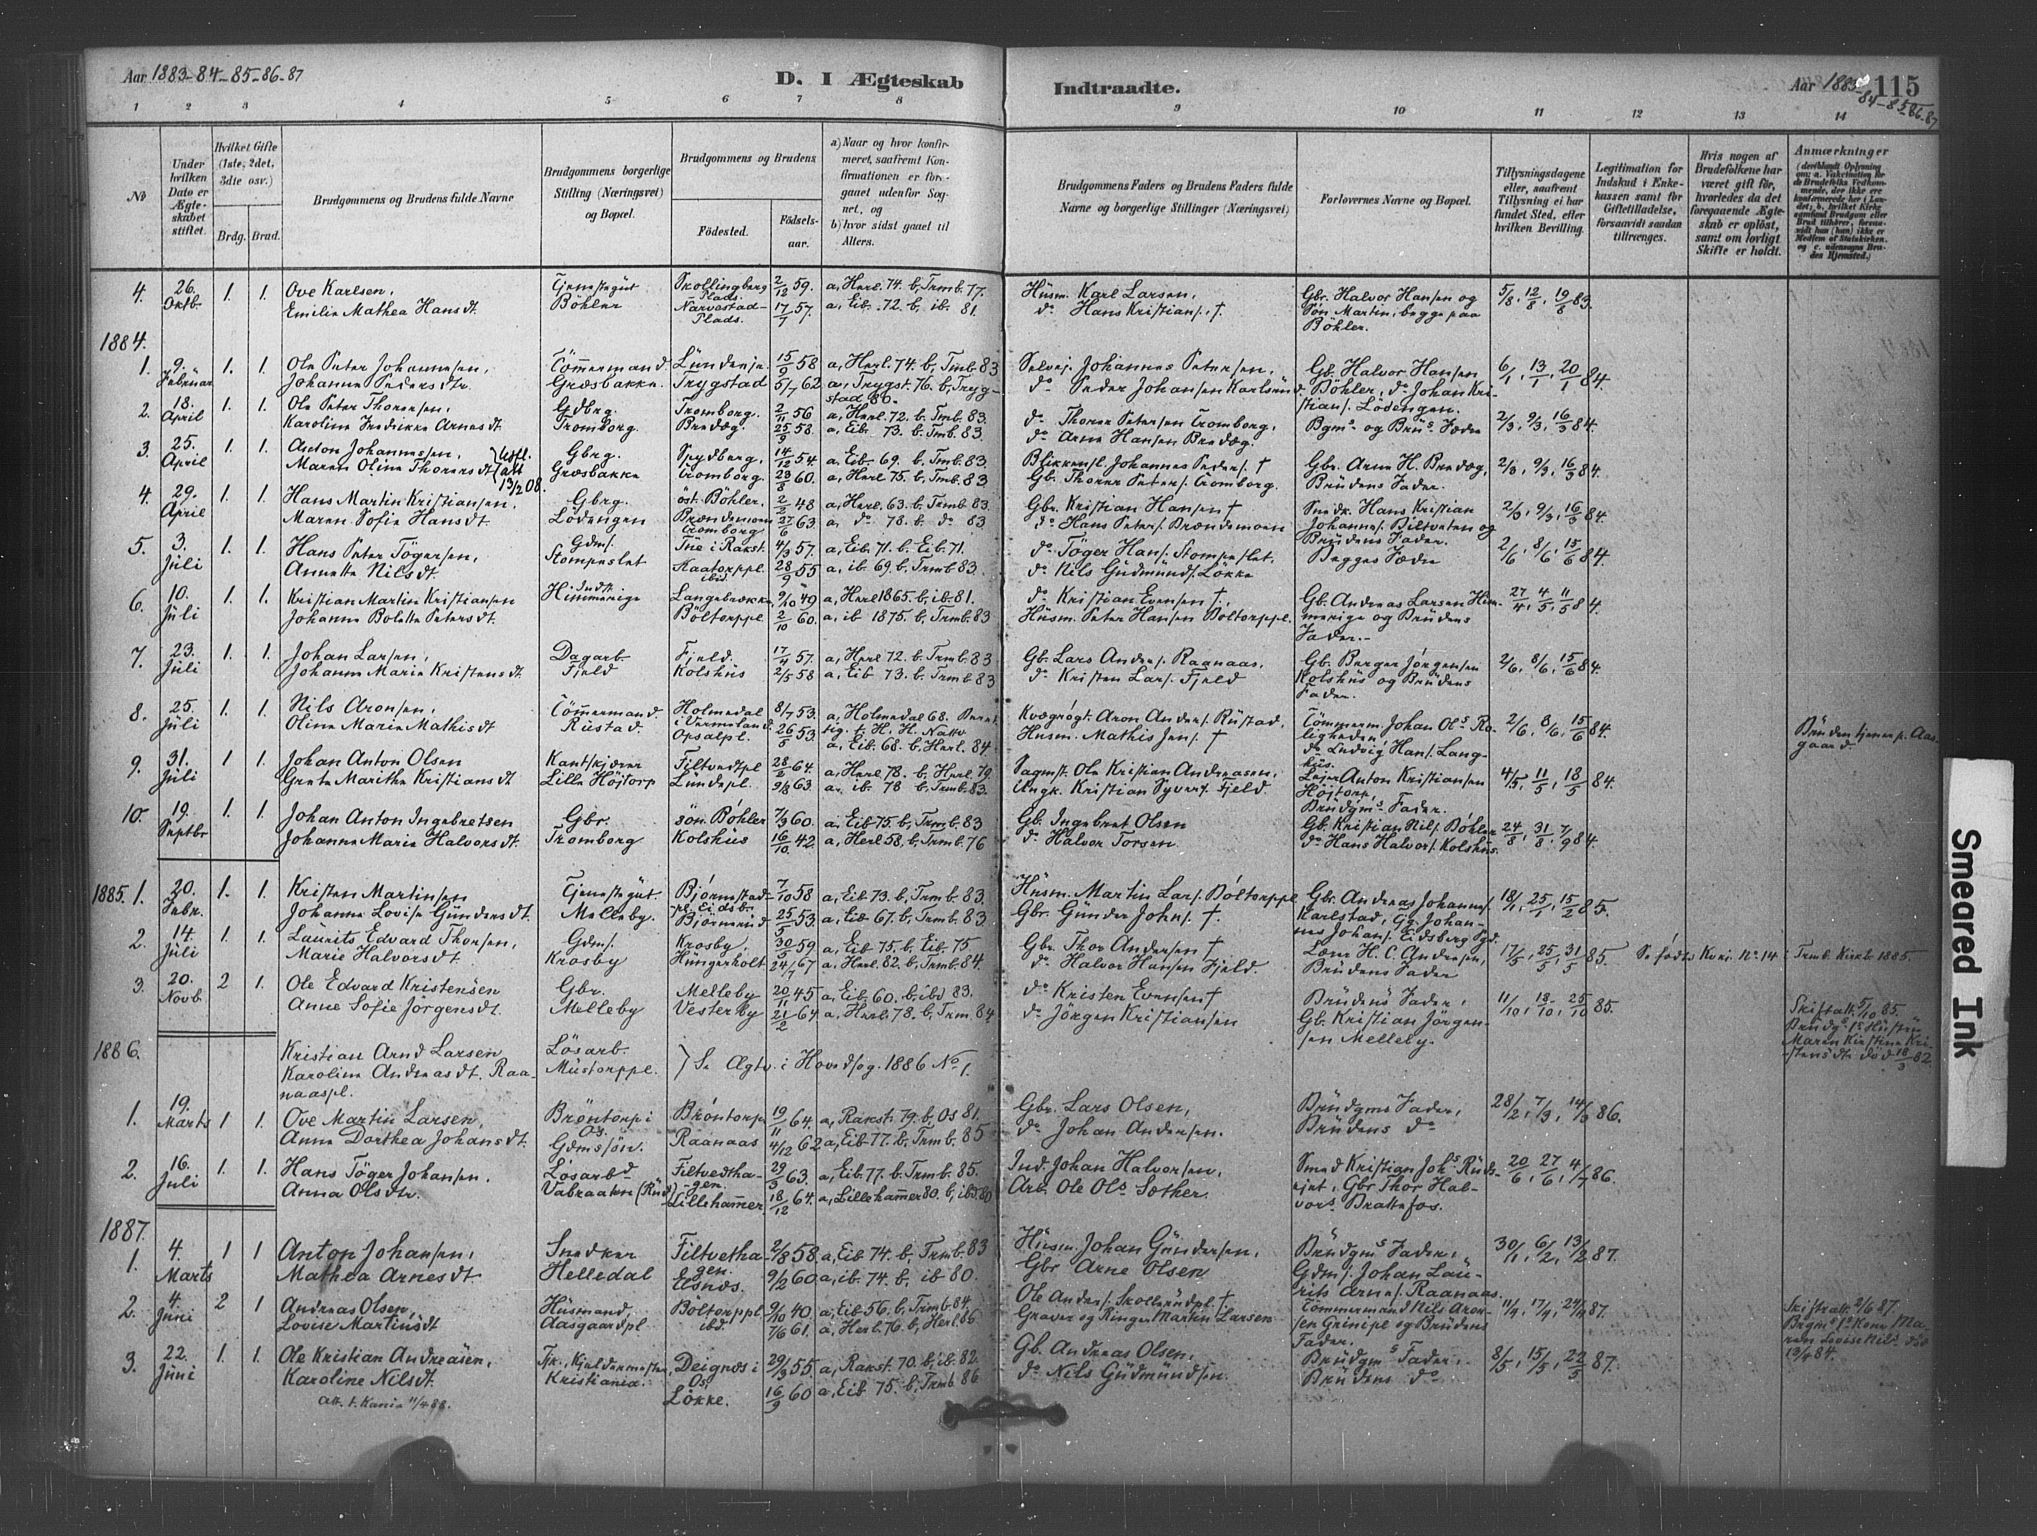 Aar 1883-84-85-86-87
D. I Ægteskab
Indtraadte.
Aar 1883-84-85-86-87
115
1 2 3 4 5 6 7 8 9 10 11 12 13 14
No
Under hvilken Dato er Ægteskabet stiftet.
Hvilket Gifte (1ste, 2det, 3die osv.)
Brdg. Brud.
Brudgommens og Brudens fulde Navne
Brudgommens borgerlige Stilling (Næringsvei) og Bopæl.
Brudgommens og Brudens
Fødested. Fødselsaar.
a) Naar og hvor konfirmeret, saafremt Konfirmationen er foregaaet udenfor Sognet, og
b) hvor sidst gaaet til Alters.
Brudgommens Faders og Brudens Faders fulde Navne og borgerlige Stillinger (Næringsvei)
Forlovernes Navne og Bopæl.
Tillysningsdagene eller, saafremt Tillysning ei har fundet Sted, efter hvilken Bevilling.
Legitimation for Indskud i Enkekassen samt for Giftetilladelse, forsaavidt saadan tiltrænges.
Hvis nogen af Brudefolkene har været gift før, hvorledes da det foregaaende Ægteskab er opløst, samt om lovligt Skifte er holdt.
Anmærkninger
4. 26. Oktb. 1. 1. Ove Karlsen, Tjenestegut Skollingberg Plads. 2/12 59. a, Herl. 74. b, Trmb. 77. Husm. Karl Larsen, Gbr. Halvor Hansen og 5/8, 12/8, 19/8 83.
Emilie Mathea Hansdt Bøhler Narvestad Plads. 17/7 57. a, Eib. 72. b, ib. 81. do Hans Kristians. † Søn Martin, begge paa Bøhler.
1884.
1. 9. Februar 1. 1. Ole Peter Johannesen, Tømmermand Lundeeje 15/9 58 a, Herl. 74. b, Trmb. 83 Selvej. Johannes Petersen, Gb. Halvor Hansen 6/1, 13/1, 20/1 84.
Johanne Pedersdtr. Græsbakke. Trygstad 5/7 62 a, Trygst. 76. b, Trygstad 80. do Peder Johansen Karlsrud. Bøhler, do Johan Kristians. Lødengen.
2. 18. April 1. 1. Ole Peter Thoresen, Gdbrg. Tromborg. 2/11 56 a, Herl. 72. b, Trmb. 83. do Thorer Petersen Tromborg, Bgms og Brus Fædre 2/3, 9/3, 16/3 84.
Karoline Fredrikke Arnesdt Tromborg. Bredæg 25/9 58. a, Eib. 73. b, Trmb. 83. do Arne Hansen Bredæg.
3. 25. April 1. 1. Anton Johannesen, Gbrg. Spydberg. 14/12 54. a, Eib. 69. b, Trmb. 83. Blikkensl. Johannes Peders. † Gbr. Arne H. Bredæg, 2/3, 9/3, 16/3 84.
Maren Oline Thorersdt (Utfl. att 13/2 08. Græsbakke Tromborg. 23/8 60. a, Herl. 75. b, Trmb. 83 Gb. Thorer Peters. Tromborg. Brudens Fader.
4. 29. April 1. 1. Hans Martin Kristiansen, Gbrg. øst. Bøhler. 2/2 48 a, Herl. 63. b, Trmb. 83 Gbr. Kristian Hansen † Smedk. Hans Kristian 2/3, 9/3, 16/3 84.
Maren Sofie Hansdt Lødengen Brændemoen Tromborg 27/6 63. a. do 78. b. do 83 do Hans Peters. Brændemoen Johannes. Biltveten og Brudens Fader.
5. 3. Juli 1. 1. Hans Peter Tøgersen, Gdms. Tue i Rakst. 4/3 57. a, Eib. 71. b. Eib. 71. do Tøger Hans. Stompeslet. Begges Fædre 2/6, 8/6, 15/6 84.
Annette Nilsdt. Stompeslet Kaatorppl. ibid. 28/9 55 a. ib 69. b. Trmb 83. do Nils Gudmunds. Løkke
6. 10. Juli 1. 1. Kristian Martin Kristiansen Indst. Himmerige Langebrække 9/10 49 a, Herl 1865. b, ib. 81. do Kristian Evensen †. Gb. Andreas Larsen Himmerige og Brudens Fader.- 27/4, 4/5, 11/5 84.
Johanne Bolette Petersdt. Bøltorppl 2/10 60. a. ib 1875. b, Trmb. 83. Husm. Peter Hansen Bøltorppl.
7. 23. Juli 1. 1. Johan Larsen, Dagarb. Fjeld. 17/4 57. a, Herl 72. b. Trmb. 83 Gb. Lars Anders. Raanaas. Gb. Berger Jørgensen 2/6, 8/6, 15/6 84.
Johanne Marie Kristensdt Fjeld Kolshus 2/5 58 a. Eib. 73. b. Trmb. 83 do Kristen Lars. Fjeld Kolshus og Brudens Fader.
8. 25. Juli 1. 1. Nils Aronsen, Tømmermand. Holmedal i Vermeland 8/7 53. a, Holmedal 68. Kvægrøgt. Aron Anders. Rustad, Tømmerm. Johan Ols Roligheden 2/6, 8/6, 15/6 84. Bruden tjener p. Aasgaard.
Oline Marie Mathisdt Rustad. Opsalpl. 26/5 53. a. Eib. 68. b. Herl. 84. Husm. Mathis Jens. † do Ludvig Hans. Langhus.
9. 31. Juli 1 1. Johan Anton Olsen Kantskjærer Filtvedtpl 28/2 64. a, Herl. 78. b, Herl. 79. Sagmst. Ole Kristian Andreasen, Lejer Anton Kristiansen 4/5, 11/5, 18/5 84.
Grete Marithe Kristiansdt Lille Højtorp Lundepl. 9/8 63. a. ib. 78 b. Trmb. 83. Ungk. Kristian Syvers. Fjeld. Højtorp, Brudgms Fader.
10. 19. Septbr 1. 1. Johan Anton Ingebretsen Gbr. søn. Bøhler 7/3 60. a, Eib. 75. b, Trmb. 83 Gb. Ingebret Olsen Gb. Kristian Nils. Bøhler 24/8, 31/8, 7/9 84.
Johanne Marie Halvorsdt. Tromborg Kolshus 16/10 42. a, Herl 58. b, Trmb. 76 do Halvor Torsen. do Hans Halvors. Kolshus.
1885. 1. 20. Febr. 1. 1. Kristen Martinsen Tjenestegut. Bjørnestadpl. Eidsb. 7/10 58 a, Eib 73. b, Trmb. 83. Husm. Martin Lars. Bøltorppl. Gbr. Andreas Johannes. 18/1, 25/1, 15/2 85.
Johanne Lovise Gundersdt. Melleby. Bjørnerud 25/5 53. a, Eib 67. b, Trmb. 83. Gbr. Gunder Johns. †. Karlstad, Gg. Johannes Johans. Eidsberg Pgd.
2. 14. Juli 1. 1. Laurits Edvard Thorsen, Gdms. Krosby, 30/5 59 a, Eib. 75. b, Eib. 75 Gbr. Thor Andersen † Læm. H. C. Andersen, 17/5, 25/5, 31/5 85. Se fødte Kvkj. No. 14 i Trmb. Kirkeb. 1885.
Marie Halvorsdt. Krosby Hungerholt 24/7 67 a. Herl. 82. b, Trmb. 84. do Halvor Hansen Fjeld. Brudens Fader
3. 20. Novb 2 1. Ole Edvard Kristensen Gbr. Melleby 20/11 45 a, Eib 60. b. ibd 83. do Kristen Evensen † Brudens Fader, 11/10, 18/10, 25/10 85.
Anne Sofie Jørgensdt. Melleby Vesterby 21/2 64. a, Herl. 78. b, Trm. 84 do Jørgen Kristiansen Gb. Kristian Jørgensen Melleby.
Skifteatt. 5/10 85. Brudgs 1ste Hustru Maren Kirstine Kristensdtr død 18/3 82.
1886. Kristian Arnd Larsen Løsarb. } Se Ægtv. i Hovedsog. 1886 No 1.
Karoline Andreasdt. Raanaaspl. Mustorppl.
1. 19. Marts 1 1. Ove Martin Larsen, Brøntorp i Os. Brøntorp 19/11 64. a, Rakst. 79. b, Os 81. Gbr. Lars Olsen, Brudgms Fader, 28/2, 7/3, 14/3 86.
Anne Dorthea Johansdt. Gdmssøn. Raanaas 4/12 62 a, Eib. 77. b. Trmb. 85 do Johan Andersen. Brudens do
2. 16. Juli 1. 1. Hans Tøger Johansen. Løsarbd Filtvedthagen. 29/3 63. a, Eib. 77. b, Trmb. 85. Ind. Johan Halvorsen, Smed Kristian Johs Rudsejet, Gbr Thor Halvors. Brattefos. 20/6, 27/6, 4/7 86.
Anna Olsdtr. Vabraaten (Rud) Lillehammer 18/12 64. a, Lillehammer 80. b, ibd. 80 Arb. Ole Ols Sother.
1887.
1. 4. Marts 1 1 Anton Johansen, Snedker Filtvethagen. 2/8 58. a, Eib 74. b, Trmb. 83 Husm. Johan Gundersen, Brudgms Fader, 30/1, 6/2, 13/2 87.
Mathea Arnesdt Helledal Elsnes. 9/2 60. a, ib. 74. b, ib 80. Gbr Arne Olsen Gdms. Johan Laurits Arnes. Raanaas.
2. 4 Juni 2 1 Andreas Olsen, Husmand, Bøltorppl 9/10 40. a, Eib 56. b, Trmb. 84, Ole Anders. Skollerudpl. † Tømmermand Nils Aronsen Grinipl og Brudens Fader. 11/4, 17/4, 24/4 87. Skifteatt 2/6 87.
Lovise Martinsdt Aasgaardpl ibd. 7/6 61. a, Herl. 76. b, Herl. 86 Graver og Ringer Martin Larsen Brgms 1ste Kone Maren Lovise Nils. død 13/4 84.
3. 22. Juni 1. 1. Ole Kristian Andreasen, Fjk. Kjeldermester Deignes i Os. 29/3 55 a, Rakst. 70. b, ib. 82. Gb. Andreas Olsen, Brudgms Fader, 8/5, 15/5, 22/5 87.
Karoline Nilsdt. Kristiania. Løkke. 16/9 60 a, Eib. 75. b, Trmb 86 do Nils Gudmundsen. Brudens do
Att. t. Kania 11/4 88.
Smeared Ink